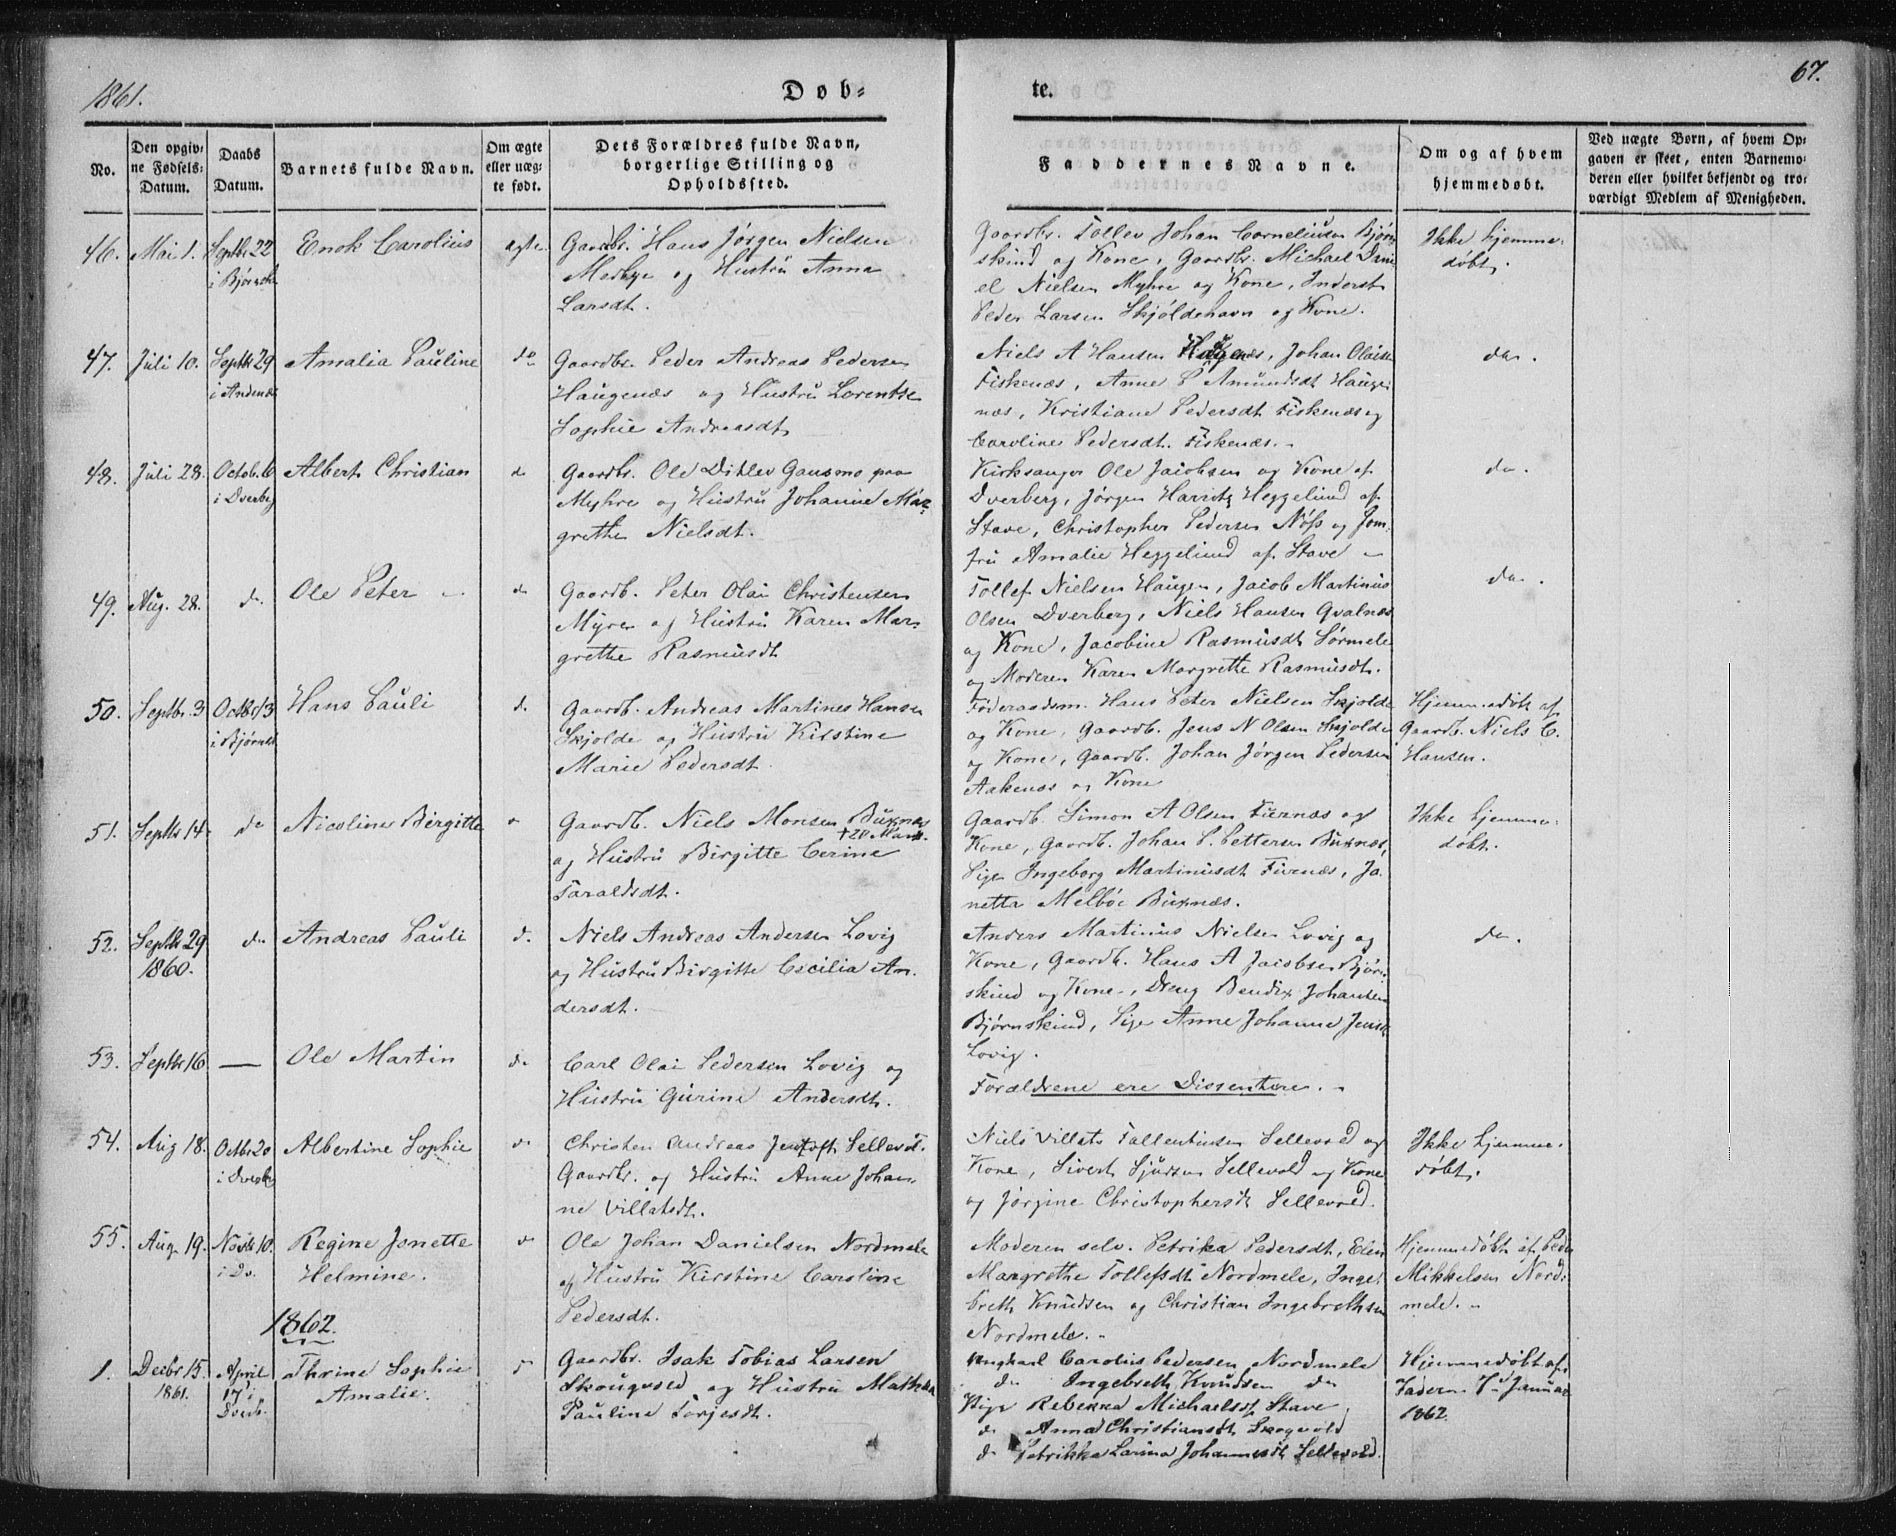 1861.
Døb-
te.
67.
No.
Den opgiv-
ne Fødsels-
Datum.
Daabs
Datum.
Barnets fulde Navn.
Om ægte
eller uæg-
te født.
Dets Forældres fulde Navn,
borgerlige Stilling og
Opholdssted.
Faddernes Navne.
Om og af hvem
hjemmedøbt.
Ved uægte Børn, af hvem Op-
gaven er skeet, enten Barnemo-
deren eller hvilket bekjendt og tro-
værdigt Medlem af Menigheden.
46. Mai 1. Septbr 22
i Bjørnsk
Enok Carolius
ægte.
Gaardbr. Hans Jørgen Nielsen
Medbye og Hustru Anna
Larsdt.
Gaardbr. Tollev Johan Corneliusen Bjørn-
skind og Kone, Gaardbr. Michael Dani-
el Nielsen Myhre og Kone, Inderst
Peder Larsen Skjoldehavn og Kone.
Ikke hjemme-
døbt.
47. Juli 10. Septbr 29
i Andenæs
Amalia Pauline
do
Gaardbr. Peder Andreas Pedersen
Haugenæs og Hustru Lorentse
Sophie Andreasdt.
Niels A Hansen Haugenæs, Johan Olaisen
Fiskenæs, Anne P Amundsdt Hauge-
næs, Kristiane Pedersdt Fiskenæs og
Caroline Pedersdt. Fiskenæs.-
do.
48. Juli 28. Octob. 6
i Dverberg
Albert Christian
do
Gaardbr. Ole Ditlev Gausmo paa
Myhre og Hustru Johanne Mar-
grethe Nielsdt.
Kirksanger Ole Jacobsen og Kone af
Dverberg, Jørgen Harritz Heggelund af
Stave, Christopher Pedersen Nøss og Jom-
fru Amalie Heggelund af Stave -
do.
49. Aug. 28. do.
Ole Peter -
do
Gaardb. Peter Olai Christensen
Myre og Hustru Karen Mar-
grethe Rasmusdt
Tollef Nielsen Haugen, Jacob Martinus
Olsen Dverberg, Niels Hansen Qvalnæs
og Kone, Jacobine Rasmusdt Sørmele
og Moderen Karen Margrethe Rasmusdt.
do.
50. Septbr. 3 Octbr 13
i Bjørnsk
Hans Pauli
d.
Gaardb. Andreas Martines Hansen
Skjolde og Hustru Kirstine
Marie Pedersdt.
Føderaadsm. Hans Peter Nielsen Skjolde
og Kone, Gaardb. Jens N Olsen Skjolde
og Kone, Gaardb. Johan Jørgen Pedersen
Aakenæs og Kone
Hjemmedøbt af
Gaardb. Niels C.
Hansen.
51. Septbr 14. do
Nicoline Birgitte
Gaardb. Niels Monsen Buxnæs
+20 Marts.
og Hustru Birgitte Cerine
Taraldsdt.
Gaardb. Simon A Olsen Fiernæs og
Kone, Gaardb. Johan P. Pettersen Buxnæs,
Pige Ingeborg Martinusdt Furnæs, Ja-
netta Melbøe Buxnæs.
Ikke hjemme-
døbt.
52. Septbr 29
1860.
do
Andreas Pauli
d.
Niels Andreas Andersen Lovig
og Hustru Birgitte Cecilia An-
dersdt.
Anders Martinus Nielsen Lovig og
Kone, Gaardb. Hans A Jacobsen Bjørn-
skind og Kone-, Dreng Bendix Johansen
Bjørnskind, Pige Anne Johanne Jensdt
Lovig.
do.
53. Septbr 16 —
Ole Martin
do
Carl Olai Pedersen Lovig og
Hustru Gurine Andersdt.
Forældrene ere Dissentere. -
54. Aug 18. Octbr 20
i Dverbe
Albertine Sophie
do
Christen Andreas Jentoft Sellevol.
Gaardbr. og Hustru Anne Johan-
ne Villatsdt.
Niels Villats Tallentinsen Sellevold og
Kone, Sivert Sjursen Sellevold og Kone
og Jørgine Christophersdt Sellevold.
Ikke hjemme-
døbt.
55. Aug 19. Novbr 10.
i Do.
Regine Jonette
Helmine.
do
Ole Johan Danielsen Nordmele
og Hustru Kirstine Caroline
Pedersdt.
Moderen selv. Petrika Pedersdt, Elen
Margrethe Tollefsdt Nordmele, Inge-
breth Knudsen og Christian Ingebrethsen
Nordmele.-
Hjemmedøbt af Peder
Mikkelsen Nord-
mele. -
1862.
1. Decbr 15.
1861.
April
17 i
Dverb.
Thrine Sophie
Amalie.
Gaardbr. Isak Tobias Larsen
Skougvold og Hustru Mathea
Pauline Torjesdt.
Ungkarl Carolius Pedersen Nordmele
do Ingebreth Knudsen do
Pige Rebekka Michaelsdt Stave
do Anna Christiansdt Skogvold
do Petrikka Larina Johannesdt Sellevold.
Hjemmedøbt af
Faderen Januar
1862.